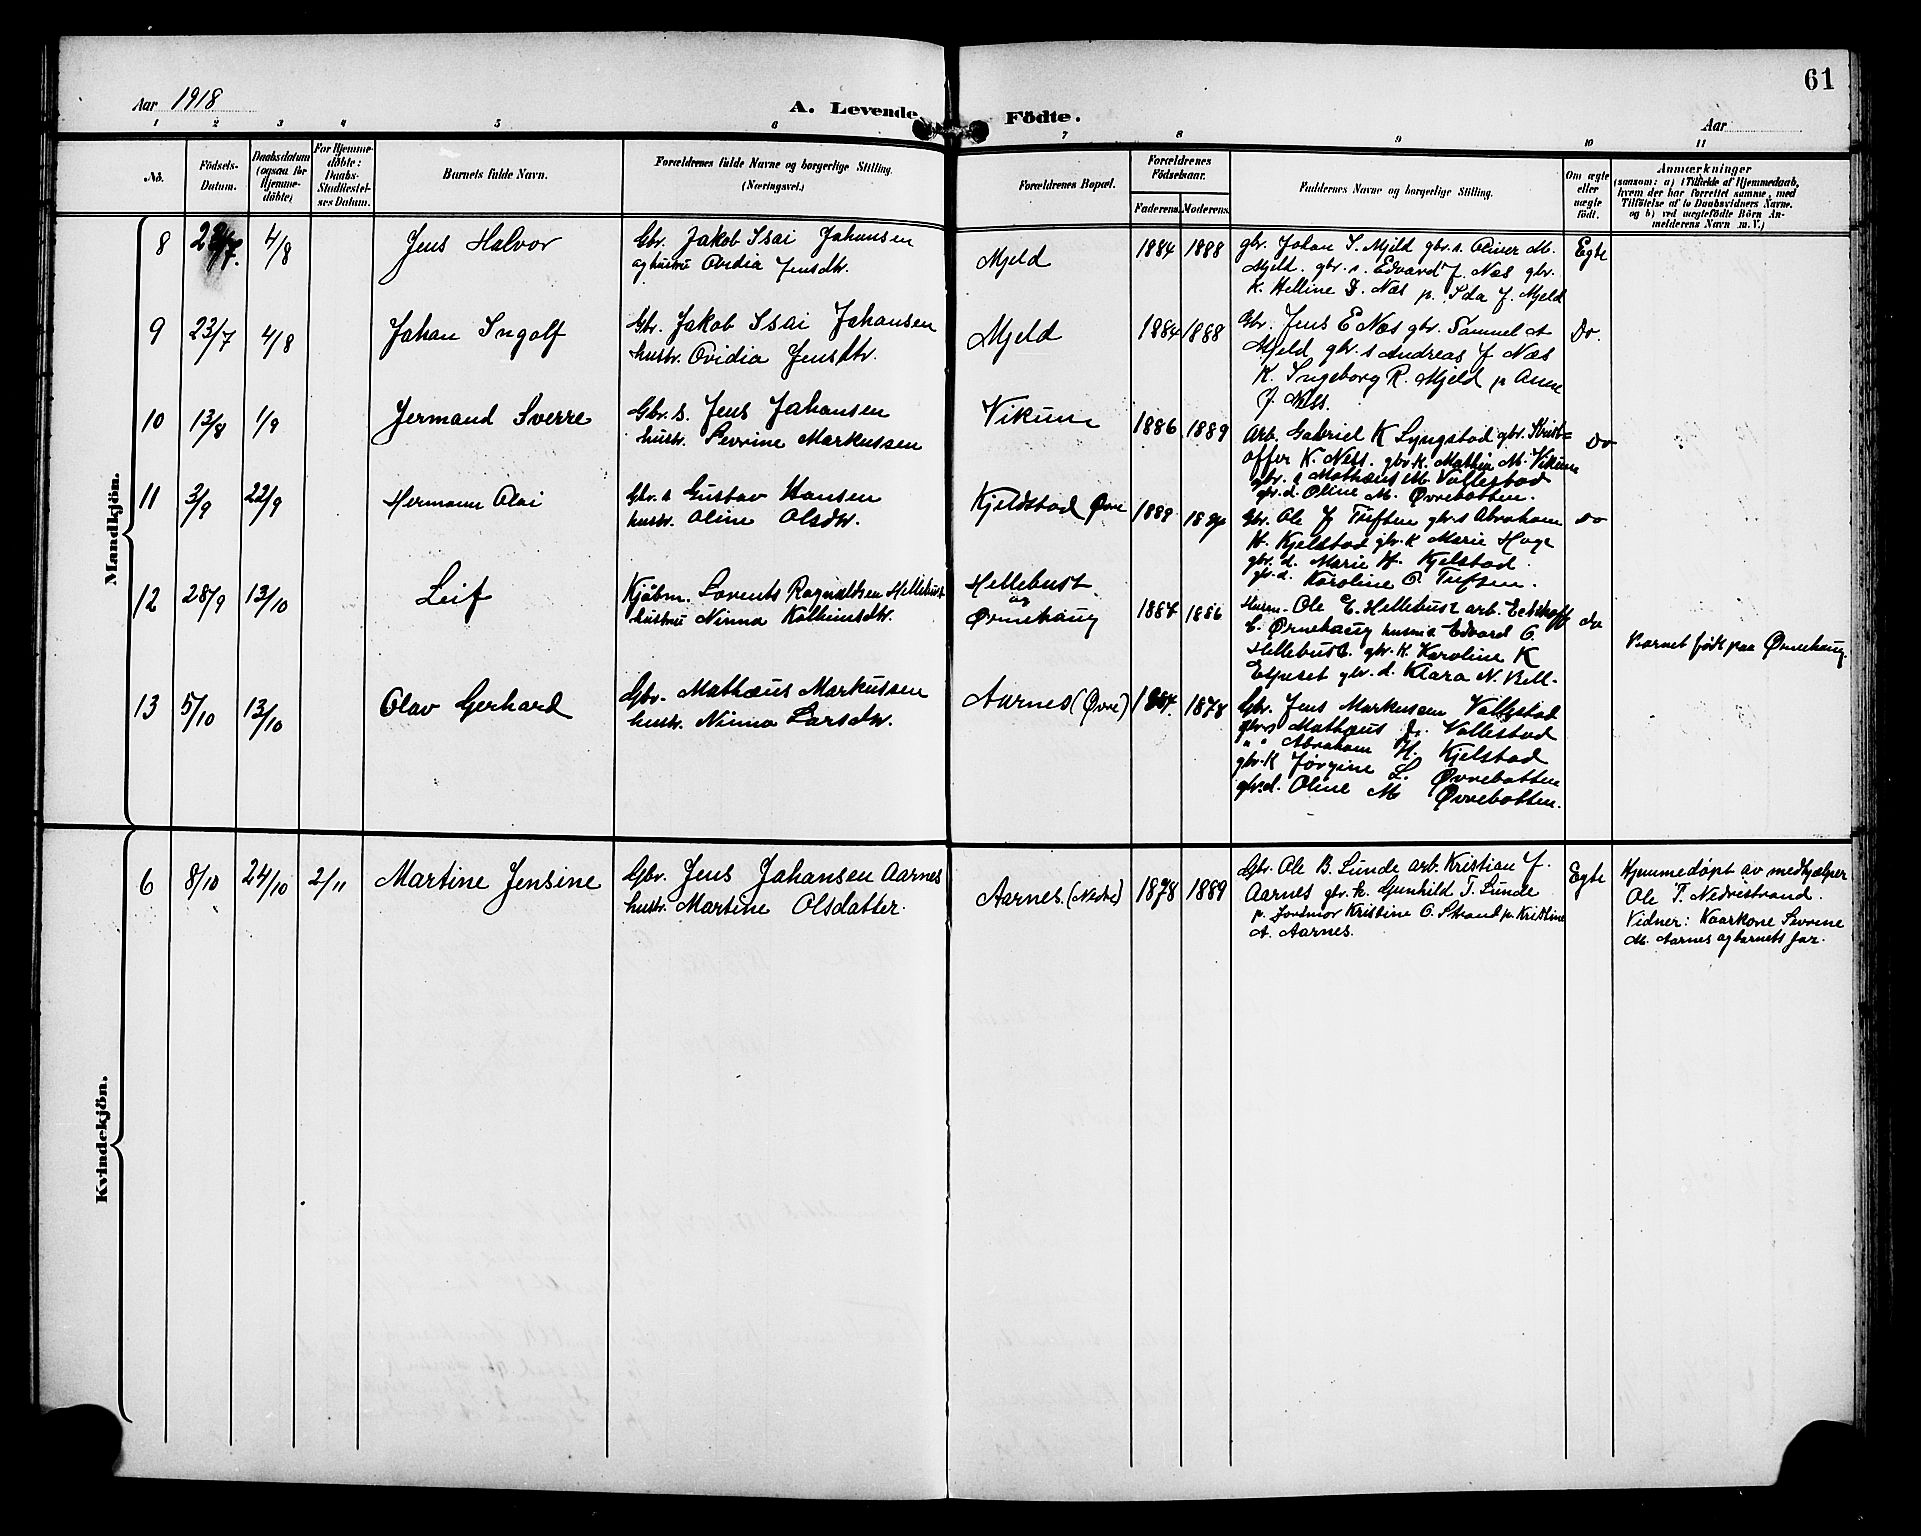 61
Aar 1918
A. Levende Födte.
Aar
1 2 3 4 5 6 7 8 9 10 11
No.
Födsels-
Datum.
Daabsdatum
(ogsaa for
Hjemme-
døbte)
For Hjemme-
døbte:
Daabs-
Stadfæstel-
ses Datum.
Barnets fulde Navn.
Forældrenes fulde Navne og borgerlige Stilling.
(Næringsvei.)
Forældrenes Bopæl.
Forældrenes
Födselsaar.
Faderens. Moderens.
Faddernes Navne og borgerlige Stilling.
Om ægte
eller
uægte
födt.
Anmærkninger
(saasom: a) i Tilfælde af Hjemmedaab,
hvem der har forrettet samme, med
Tilföielse af to Daabsvidners Navne.
og b) ved uægtefödte Börn An-
melderens Navn m. V.)
Mandkjön.
8 /7. 4/8 Jens Halvor
Gbr. Jakob Isai Johansen
og hustru Ovidia Jensdtr.
Mjeld 1884 1888
gbr. Johan S. Mjeld gbr. s. Oliver M.
Mjeld. gbr. s. Edvard J. Næs gbr.
k. Helline D. Næs p. Ida J. Mjeld
Egte
9 23/7 4/8 Johan Ingolf
Gbr. Jakob Isai Johansen
hustr. Ovidia Jensdtr.
Mjeld 1884 1888
Gbr. Jens E Næs gbr. Samuel A
Mjeld gbr. s Andreas J Næs
K. Ingeborg R. Mjeld p Anne
J. Ness.
Do.
10 13/8 1/9 Jermand Sverre
Gbr. s. Jens Johansen
hustr. Sevrine Markussen
Vikum 1886 1889
Arb. Gabriel K Lyngstad gbr. Krist-
offer K. Ness. gbr. k. Mathea M. Vikum
gbr. s Mathæus M. Vallestad
gbr. d. Oline M. Øvrebotten.
Do
11 3/9 22/9 Hermann Olai
Gbr. s Gustav Hansen
hustr. Oline Olsdtr.
Kjeldstad Øvre 1889
Gbr. Ole J Tufsen gbr. s Abraham
H. Kjelstad gbr. k Marie Hage
gbr. d. Marie H. Kjelstad.
gbr. d. Karoline O. Tufsen.
Do
12 28/9 13/10 Leif
Kjøbm. Lorents Ragnvaldsen Hellebust
hustru Ninna
Hellebust
og
Ørnehaug
1884 1886
Husm. Ole E. Hellebust arb. Eckhoff
E. Ørnehaug husm. s. Edvard O.
Hellebust. gbr. k. Karoline K
gbr. d. Klara N. Bell-
do
Barnet født paa Ørnehaug.
13 5/10 13/10 Olav Gerhard
Gbr. Mathæus Markussen
hustr. Ninna Larsdtr.
Aarnes (Øvre) 1878
Gbr. Jens Markussen Vallestad
gbr. s Mathæus J. Vallestad
" " Abraham H. Kjelstad
gbr. k Jørgine L. Øvrebotten
gbr. d. Oline M Øvrebotten.
Kvindekjön.
6 8/10 24/10 2/11 Martine Jensine
Gbr. Jens Johansen Aarnes
hustr. Martine Olsdatter.
Aarnes. (Nedre) 1878 1889
Gbr. Ole B. Lunde arb. Kristian J.
Aarnes gbr. k. Gunhild T. Lunde
p. Jordmor Kristine O. Strand p. Kristine
A. Aarnes.
Egte
Hjemmedøpt av medhjælper
Ole T. Nedrestrand.
Vidner: Kaarkone Sevrine
M. Aarnes og barnets far.